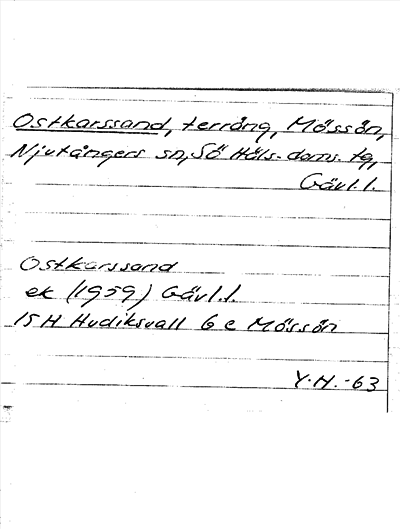 Ostkarssand, terräng, Mössön,
Njutångers sn, Sö Häls. doms. tg,
Gävl.l.
Ostkarssand
ek (1959) Gävl.l.
15H Hudiksvall 6e Mössön
Y.H.-63